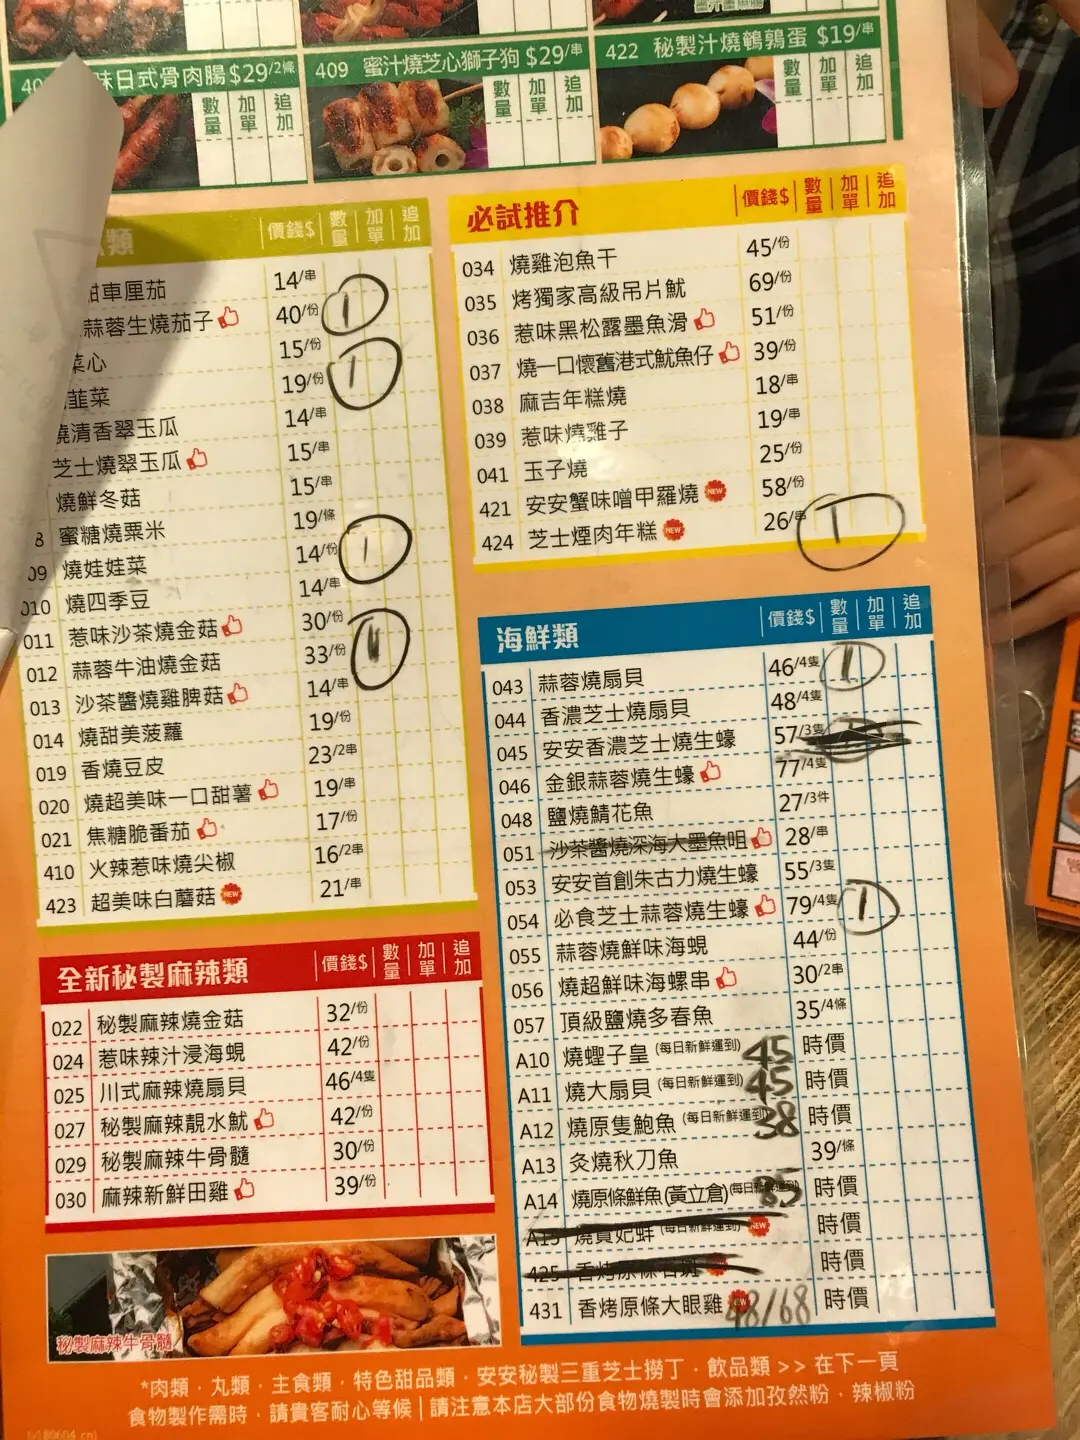 味日式骨肉腸 $29/2條
409 蜜汁燒芝心獅子狗 $29/串
422 秘製汁燒鵪鶉蛋 $19/串
數量 加單 追加
數量 加單 追加
數量 加單 追加
類 價錢$ 數量 加單 追加
甜車厘茄 14/串
蒜蓉生燒茄子 40/份 1
菜心 15/份
韮菜 19/份 1
燒清香翠玉瓜 14/串
芝士燒翠玉瓜 15/串
燒鮮冬菇 15/串
8 蜜糖燒粟米 19/條
09 燒娃娃菜 14/份 1
010 燒四季豆 14/串
011 惹味沙茶燒金菇 30/份
012 蒜蓉牛油燒金菇 33/份 1
013 沙茶醬燒雞脾菇 14/串
014 燒甜美菠蘿 19/份
019 香燒豆皮 23/2串
020 燒超美味一口甜薯 19/串
021 焦糖脆番茄 17/份
410 火辣惹味燒尖椒 16/2串
423 超美味白蘑菇 NEW 21/串
全新秘製麻辣類 價錢$ 數量 加單 追加
022 秘製麻辣燒金菇 32/份
024 惹味辣汁浸海蜆 42/份
025 川式麻辣燒扇貝 46/4隻
027 秘製麻辣靚水魷 42/份
029 秘製麻辣牛骨髓 30/份
030 麻辣新鮮田雞 39/份
秘製麻辣牛骨髓
必試推介 價錢$ 數量 加單 追加
034 燒雞泡魚干 45/份
035 烤獨家高級吊片魷 69/份
036 惹味黑松露墨魚滑 51/份
037 燒一口懷舊港式魷魚仔 39/份
038 麻吉年糕燒 18/串
039 惹味燒雞子 19/串
041 玉子燒 25/份
421 安安蟹味噌甲羅燒 NEW 58/份
424 芝士煙肉年糕 NEW 26/串 1
海鮮類 價錢$ 數量 加單 追加
043 蒜蓉燒扇貝 46/4隻 1
044 香濃芝士燒扇貝 48/4隻
045 安安香濃芝士燒生蠔 57/3隻
046 金銀蒜蓉燒生蠔 77/4隻
048 鹽燒鯖花魚 27/3件
051 沙茶醬燒深海大墨魚咀 28/串
053 安安首創朱古力燒生蠔 55/3隻
054 必食芝士蒜蓉燒生蠔 79/4隻 1
055 蒜蓉燒鮮味海蜆 44/份
056 燒超鮮味海螺串 30/2串
057 頂級鹽燒多春魚 35/4條
A10 燒蟶子皇 (每日新鮮運到) 45 時價
A11 燒大扇貝 (每日新鮮運到) 45 時價
A12 燒原隻鮑魚 (每日新鮮運到) 38 時價
A13 灸燒秋刀魚 39/條
A14 燒原條鮮魚(黃立倉) (每日新鮮運到) 85 時價
A15 燒貴妃蚌 (每日新鮮運到) NEW 時價
425 香烤原條石斑 時價
431 香烤原條大眼雞 48/68 時價
*肉類 · 丸類 · 主食類 · 特色甜品類 · 安安秘製三重芝士撈丁 · 飲品類 >> 在下一頁
食物製作需時 · 請貴客耐心等候 | 請注意本店大部份食物燒製時會添加孜然粉 · 辣椒粉